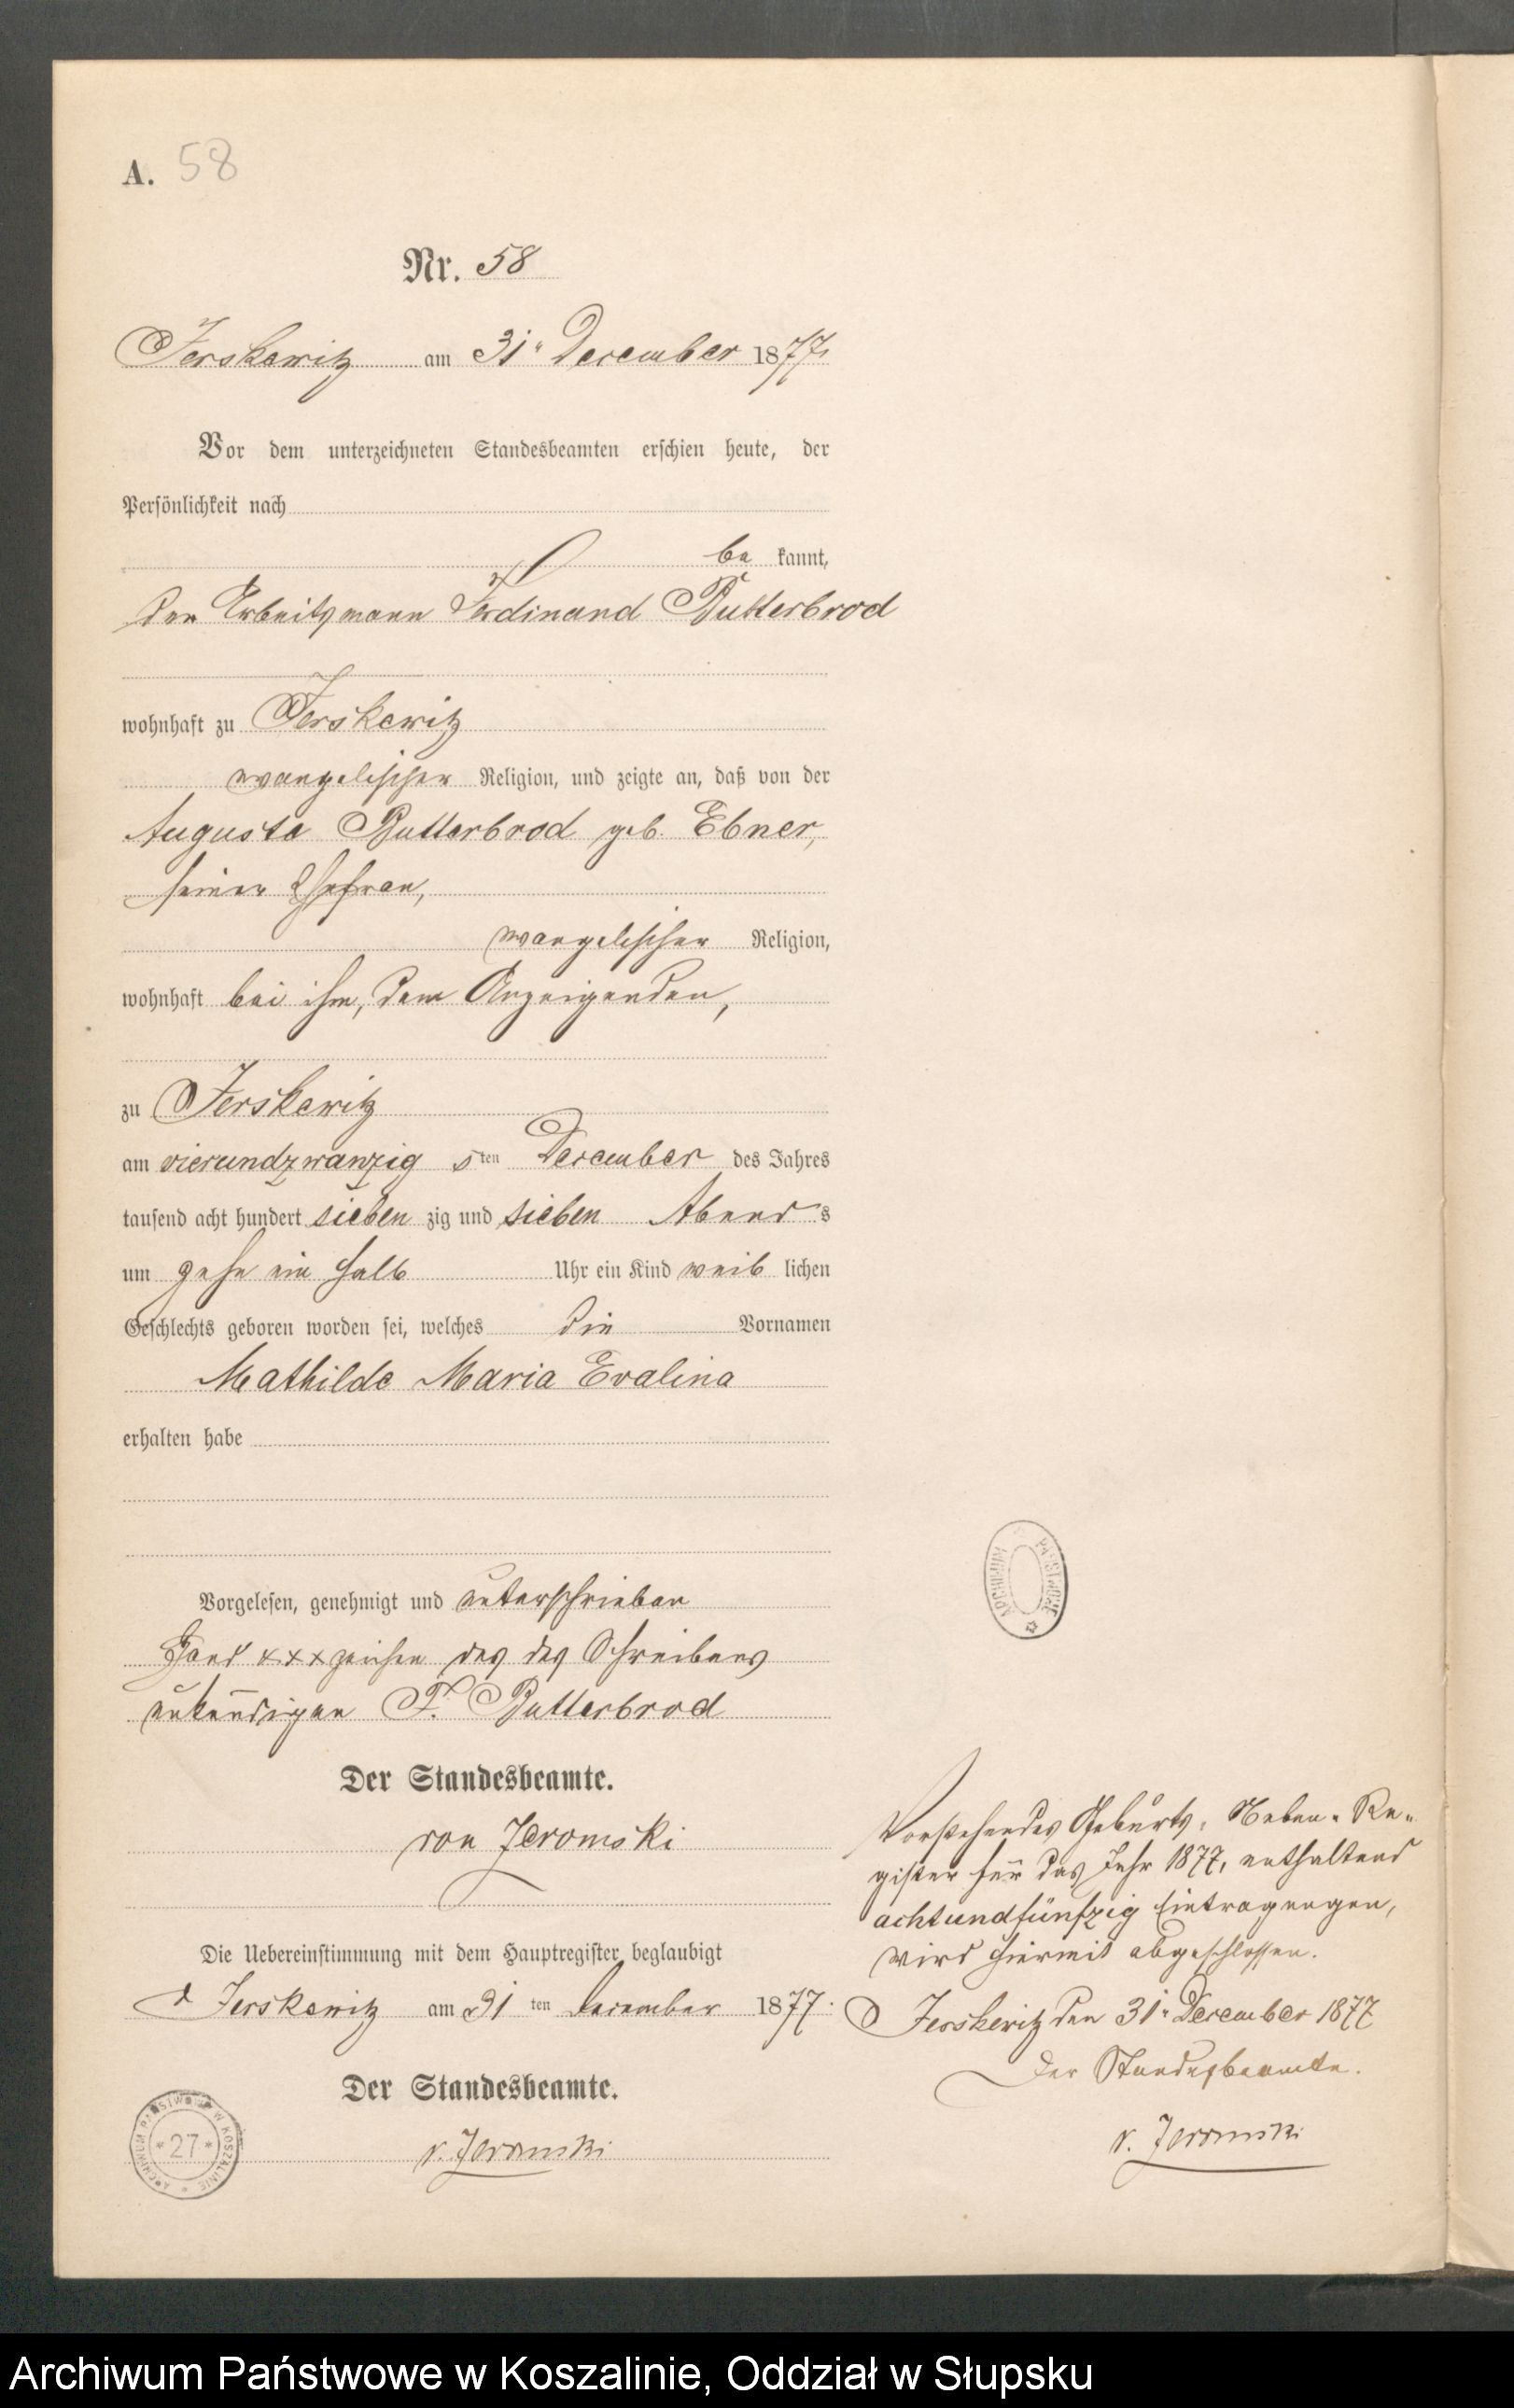 A. 58
Nr. 58
Jerskewitz am 31ⁿ December 1877.
Vor dem unterzeichneten Standesbeamten erschien heute, der
Persönlichkeit nach
be kannt,
der Arbeitsmann Ferdinand Butterbrod
wohnhaft zu Jerskewitz
evangelischer Religion, und zeigte an, daß von der
Auguste Butterbrod geb. Ebner,
seiner Ehefrau,
evangelischer Religion,
wohnhaft bei ihm, dem Anzeigenden,
zu Jerskewitz
am vierundzwanzig sten December des Jahres
tausend acht hundert sieben zig und sieben Abend s
um zehn ein halb Uhr ein Kind weib lichen
Geschlechts geboren worden sei, welches die Vornamen
Mathilde Maria Evalina
erhalten habe
Vorgelesen, genehmigt und unterschrieben
Hand xxx zeichen des des Schreibens
unkundigen F. Butterbrod
Der Standesbeamte.
von Jeromski
Die Uebereinstimmung mit dem Hauptregister beglaubigt
Jerskewitz am 31 ten December 1877.
Der Standesbeamte.
v. Jeromski
Vorstehendes Geburts-Neben-Re-
gister für das Jahr 1877, enthaltend
achtundfünfzig Eintragungen,
wird hiermit abgeschlossen.
Jerskewitz den 31ⁿ December 1877
Der Standesbeamte.
v. Jeromski
ARCHIWUM PAŃSTWOWE W KOSZALINIE
*27*
Archiwum Państwowe w Koszalinie, Oddział w Słupsku